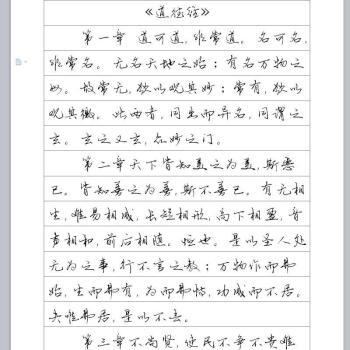 《道德经》
第一章 道可道，非常道。名可名，
非常名。无名天地之始；有名万物之
母。故常无，欲以观其妙；常有，欲以
观其徼。此两者，同出而异名，同谓之
玄。玄之又玄，众妙之门。
第二章天下皆知美之为美，斯恶
已。皆知善之为善，斯不善已。有无相
生，难易相成，长短相形，高下相盈，音
声相和，前后相随。恒也。是以圣人处
无为之事，行不言之教；万物作而弗
始，生而弗有，为而弗恃，功成而不居。
夫唯弗居，是以不去。
第三章不尚贤，使民不争不贵难